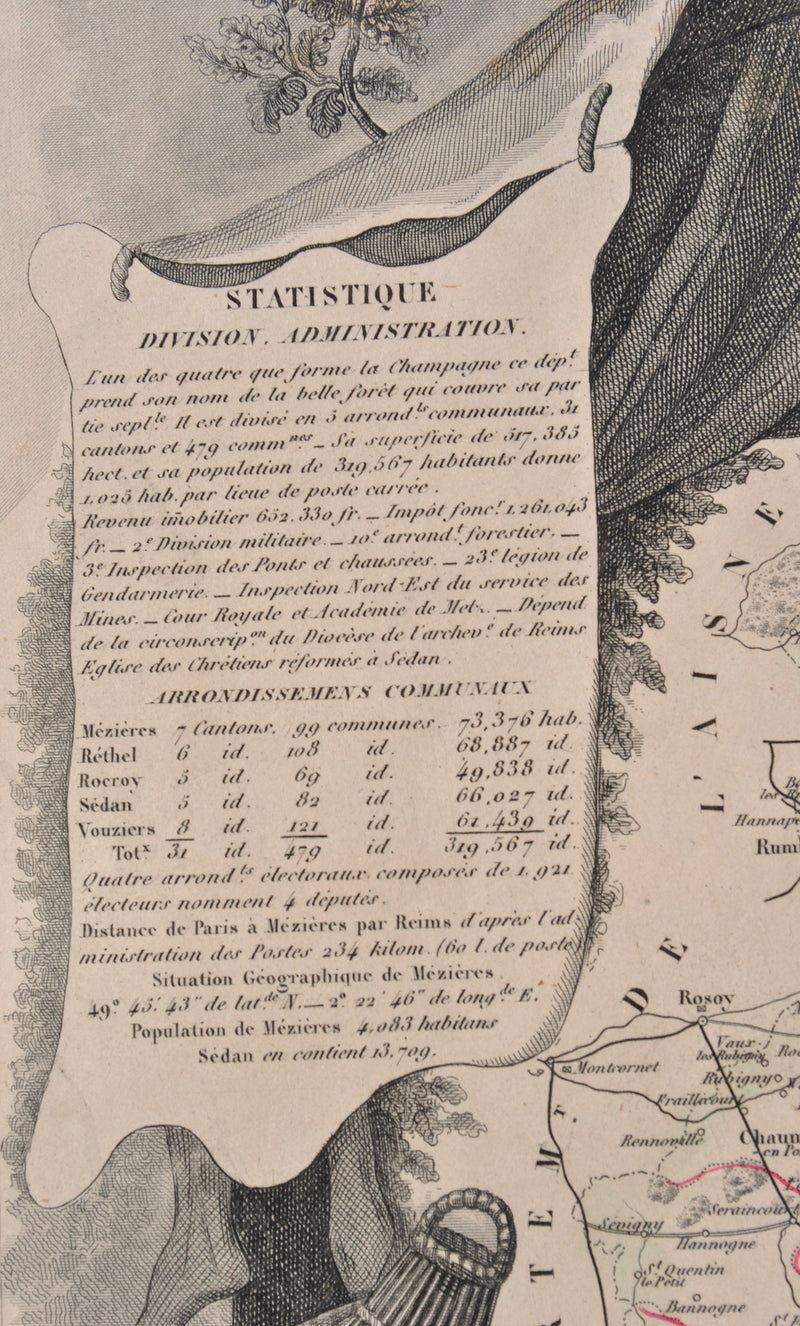 STATISTIQUE
DIVISION, ADMINISTRATION.
L'un des quatre que forme la Champagne ce dépt
prend son nom de la belle forêt qui couvre sa par
tie septle Il est divisé en 5 arrondts communaux, 31
cantons et 479 commnes _ Sa superficie de 517,385
hect. et sa population de 319,567 habitants donne
1,023 hab. par lieue de poste carrée.
Revenu imobilier 652.330 fr. _ Impôt foncr 1.261.043
fr. _ 2e Division militaire. _ 10e arrondt forestier. _
3e Inspection des Ponts et chaussées. _ 23e légion de
Gendarmerie. _ Inspection Nord-Est du service des
Mines. _ Cour Royale et Académie de Metz. _ Dépend
de la circonscripon du Diocèse de l'archevé de Reims
Eglise des Chrétiens réformés à Sedan.
ARRONDISSEMENS COMMUNAUX
Mézières 7 Cantons. 99 communes. 73,376 hab.
Réthel 6 id. 108 id. 68,887 id.
Rocroy 5 id. 69 id. 49,838 id.
Sédan 5 id. 82 id. 66,027 id.
Vouziers 8 id. 121 id. 61,439 id.
Totx 31 id. 479 id. 319,567 id.
Quatre arrondts électoraux composés de 1.921
électeurs nomment 4 députés.
Distance de Paris à Mézières par Reims d'après l'ad
ministration des Postes 234 kilom. (60 l. de poste)
Situation Géographique de Mézières.
49° 45' 43" de latde N. _ 2° 22' 46" de longde E.
Population de Mézières 4,083 habitans
Sédan en contient 13.709.
L'AISNE
DE
Rosoy
Montcornet
Vaux
les Rubigny
Rubigny
Fraillicourt
Rennoville
Chaum
en Po
Seraincourt
Sevigny
Hannogne
St Quentin
le Petit
Bannogne
Hannape
Rum
les